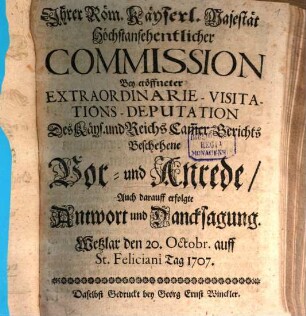 Ihrer Röm. Käyserl. Majestät
Höchstansehentlicher
COMMISSION
Bey eröffneter
EXTRAORDINARIE-VISITA-
TIONS-DEPUTATION
Des Käys. und Reichs Cam̃er-Gerichts
Beschehene
Vor- und Anrede/
Auch darauff erfolgte
Antwort und Dancksagung.
Wetzlar den 20. Octobr. auff
St. Feliciani Tag 1707.
Daselbst Gedruckt bey Georg Ernst Winckler.
REGIA
MONACENSIS